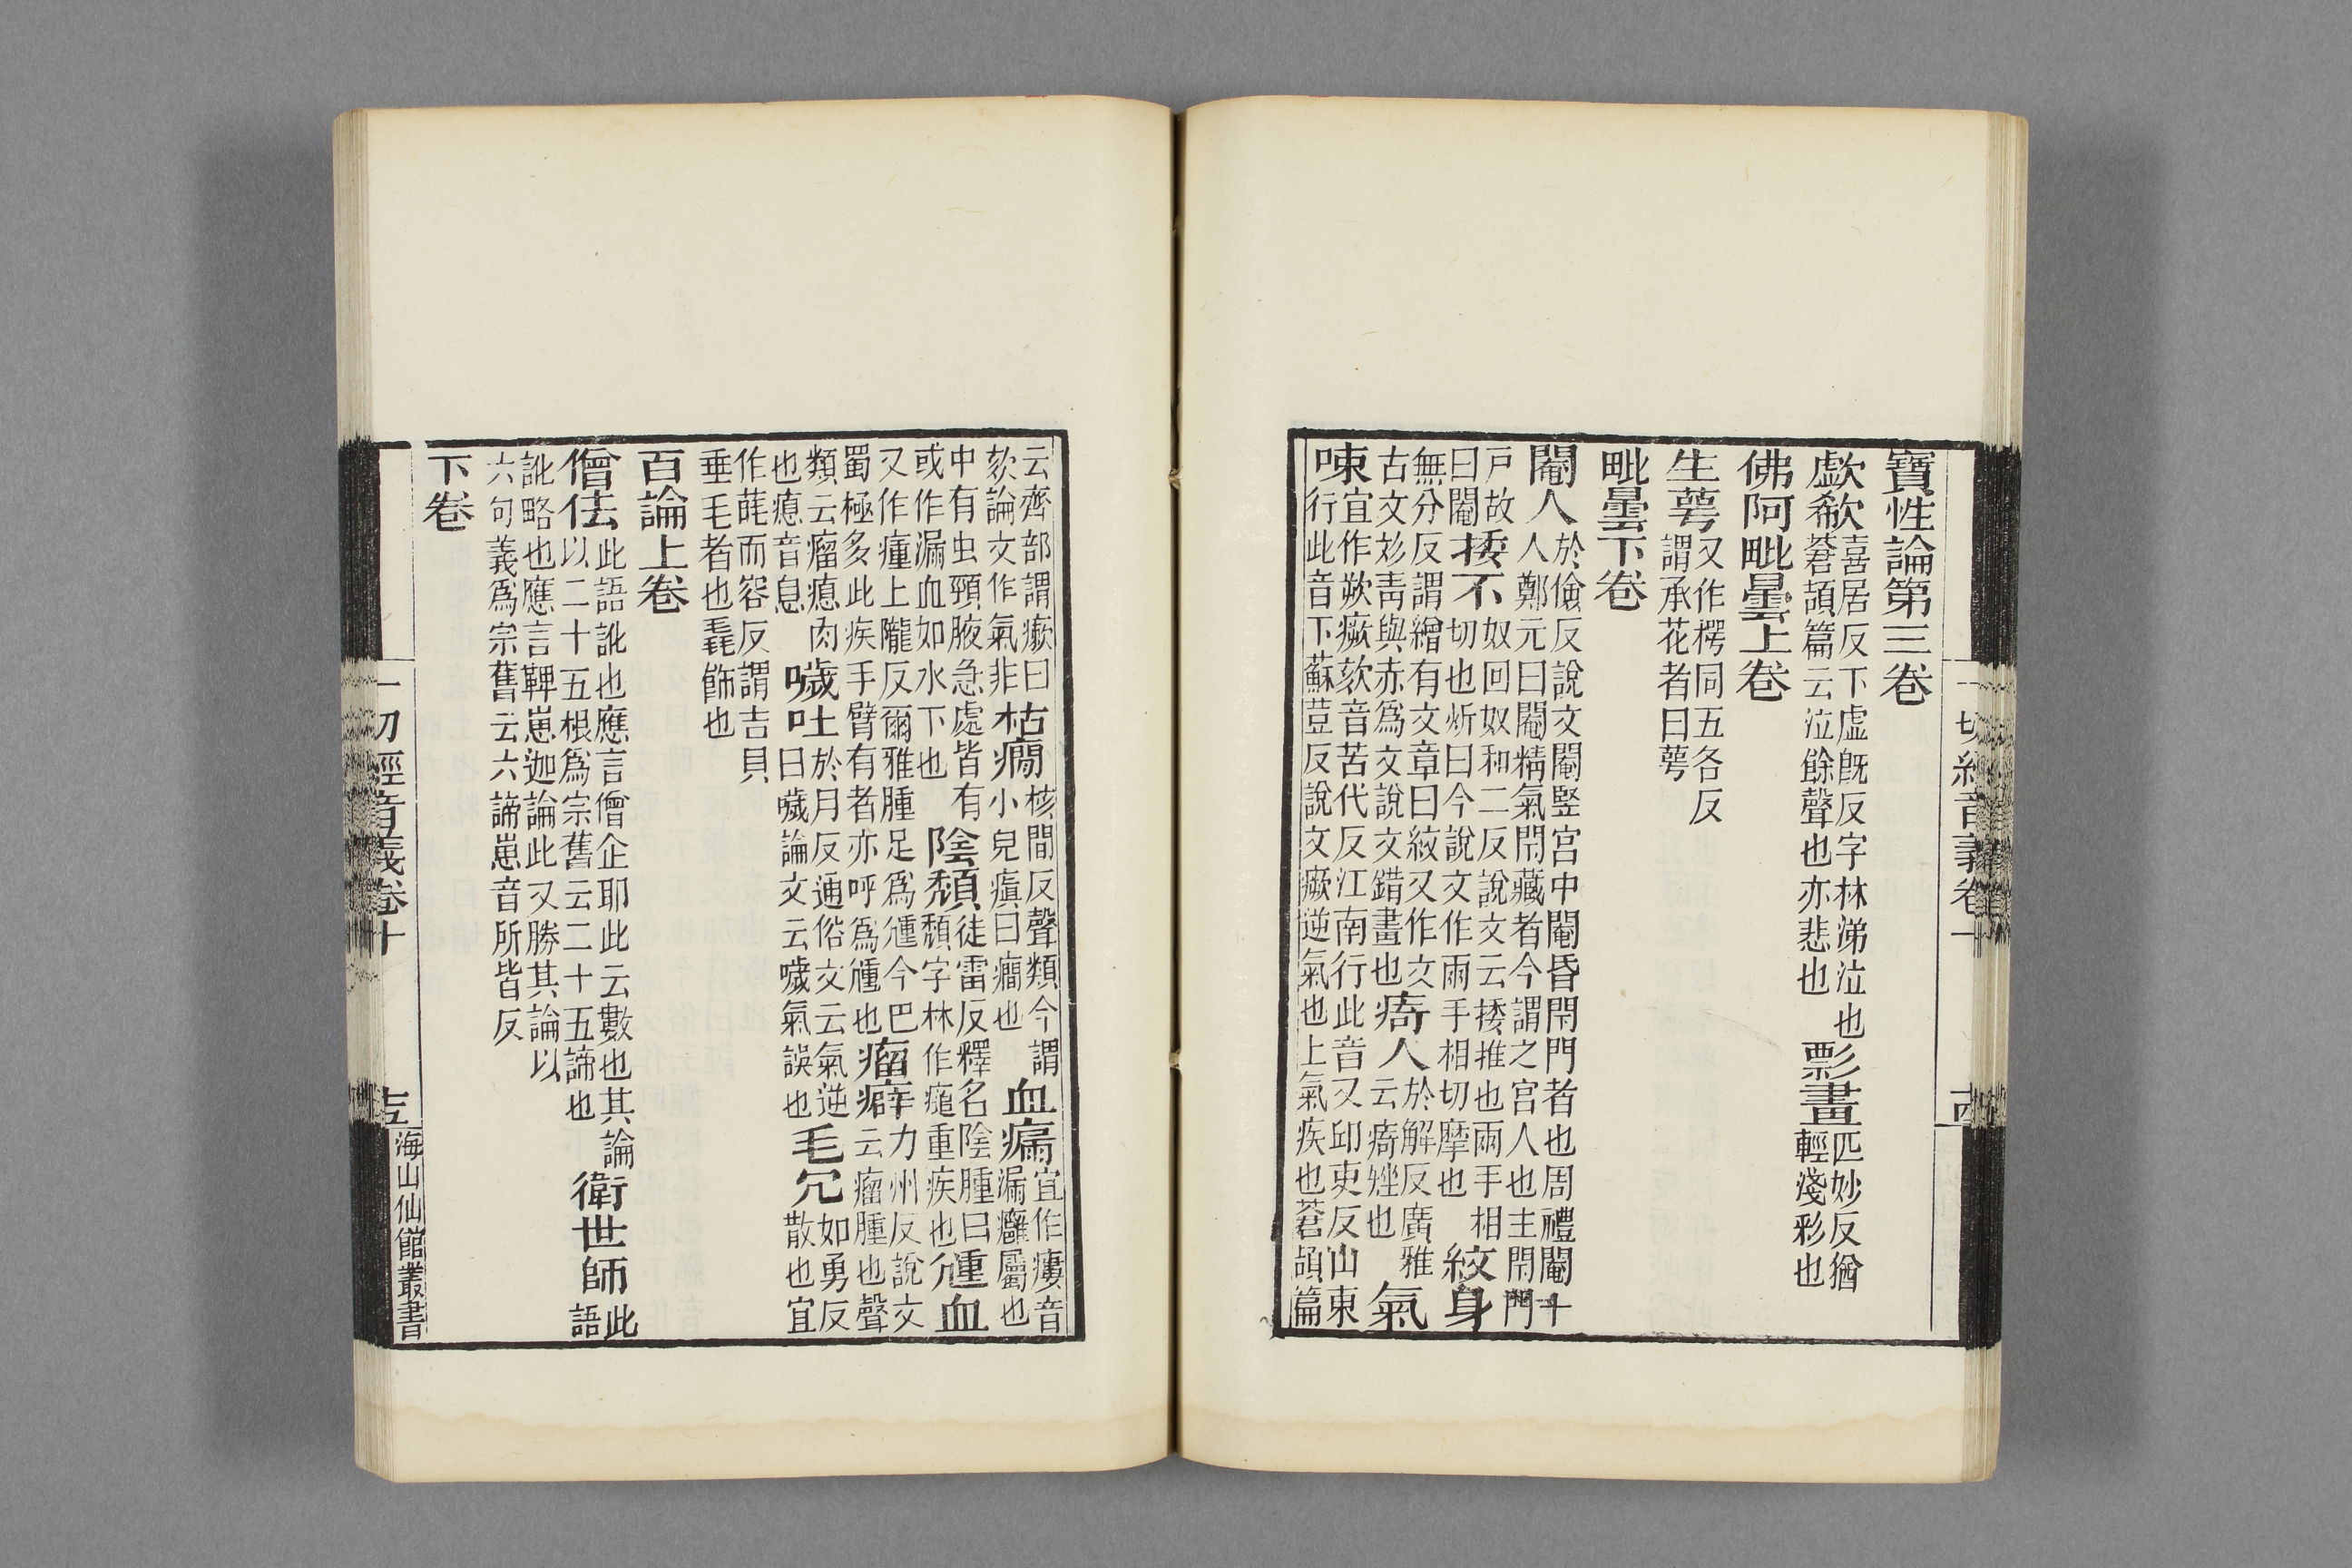 寶性論第三卷
歔欷喜居反下虛旣反字林涕泣也蒼頡篇云泣餘聲也亦悲也彯畫匹妙反猶輕淺彩也
佛阿毗曇上卷
生蕚又作樗同五各反謂承花者曰蕚
毗曇下卷
閹人於儉反說文閹豎宫中閹昏閇門者也周禮閹十人鄭元曰閹精氣閇藏者今謂之宫人也主閇門
戸故曰閹捼不奴回奴和二反說文云捼推也兩手相切也炘曰今說文作兩手相切摩也紋身
無分反謂繒有文章曰紋又作文古文彣靑與赤爲文說文錯畫也㾨人於解反廣雅云㾨矬也氣
㖒宜作欶瘶欬音苦代反江南行此音又卬吏反山東行此音下蘇荳反說文瘶逆氣也上氣疾也蒼頡篇
一切經音義卷十
十四
云齊部謂瘶曰欬論文作氣非枯癎核間反聲類今謂小兒瘨曰癎也血㿃宜作瘻音漏癰屬也
中有虫頸腋急處皆有或作漏血如水下也陰頹徒雷反釋名陰腫曰頹字林作㿗重疾也㣫血
又作瘇上隴反爾雅腫足爲㣫今巴蜀極多此疾手臂有者亦呼爲㣫也瘤癖力州反說文云瘤腫也聲
類云瘤瘜肉也瘜音息噦吐於月反通俗文云氣逆曰噦論文云噦氣誤也毛冗如勇反散也宜
作而容反謂吉貝垂毛者也毳飾也
百論上卷
僧佉此語訛也應言僧企耶此云數也其論以二十五根爲宗舊云二十五諦也衛世師此語
訛略也應言鞞崽迦論此又勝其論以六句義爲宗舊云六諦崽音所皆反
下卷
一切經音義卷十
十五
海山仙館叢書